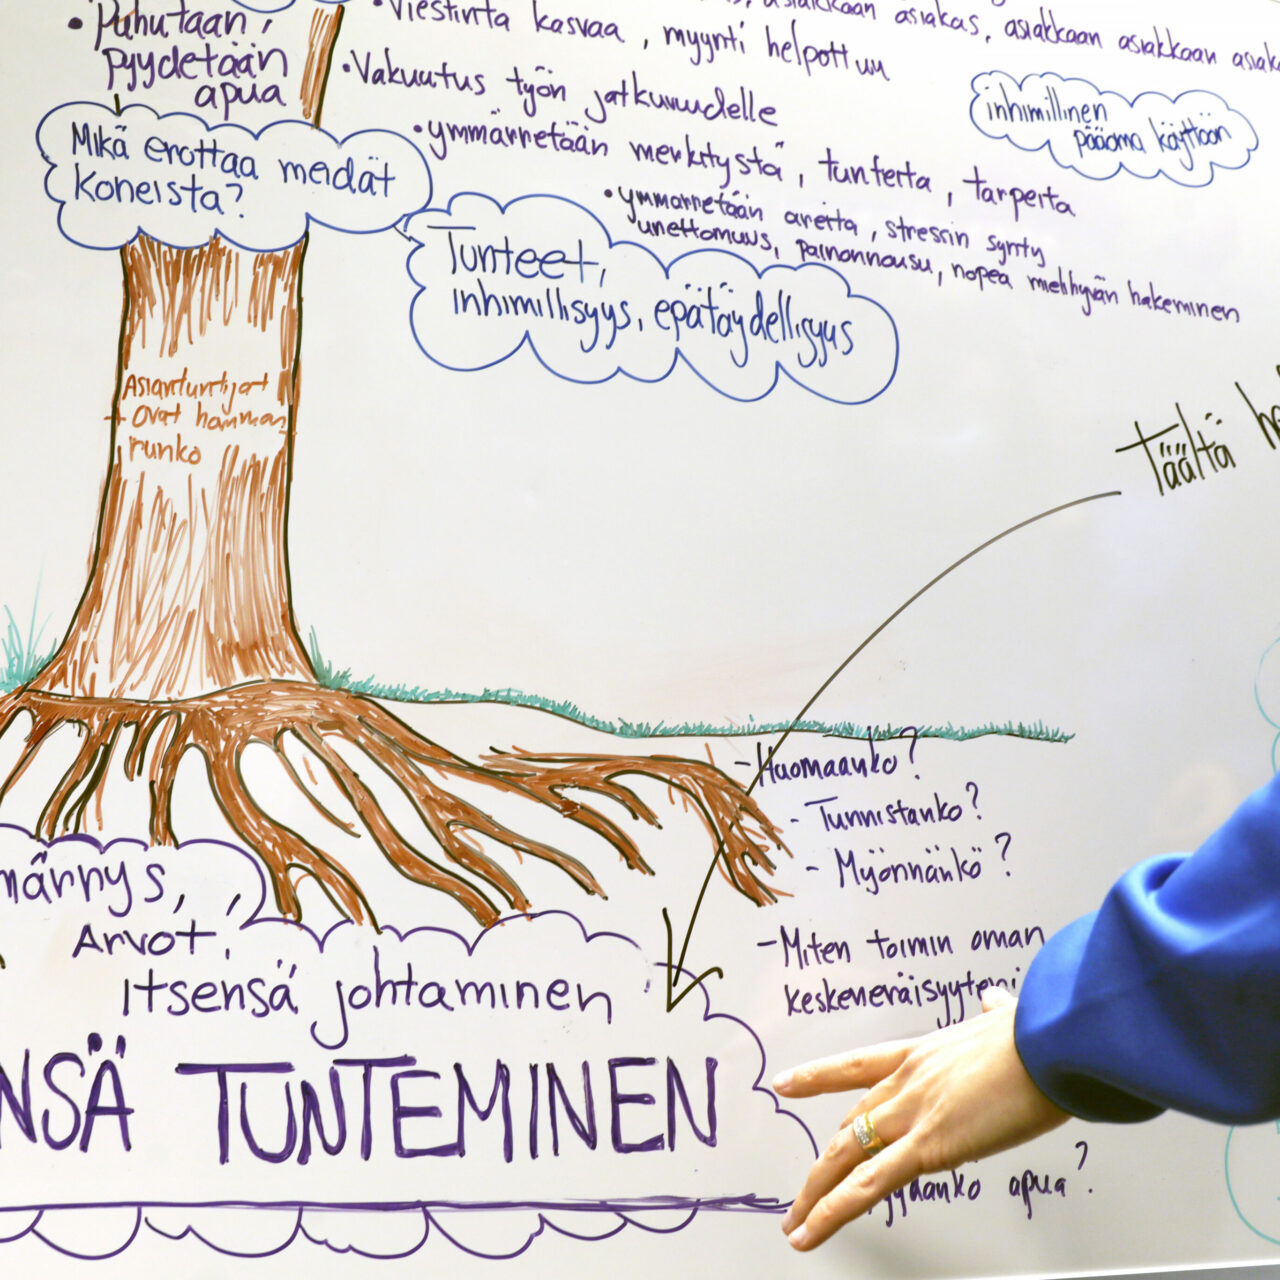 • Puhutaan,
pyydetään
apua
asiakkaan asiakas, asiakkaan asiakkaan
• Viestintä kasvaa, myynti helpottuu
• Vakuutus työn jatkuvuudelle
• ymmärretään merkitystä, tunteita, tarpeita
• ymmärretään areita, stressin synty
unettomuus, painonnousu, nopea mielihyvän hakeminen
inhimillinen
pääoma käyttöön
Mikä erottaa meidät
koneista?
Tunteet,
inhimillisyys, epätäydellisyys
Asiantuntijat
ovat
runko
Täältä
- Huomaanko?
- Tunnistanko?
- Myönnänkö?
- Miten toimin oman
Arvot,
itsensä johtaminen
TUNTEMINEN
apua?